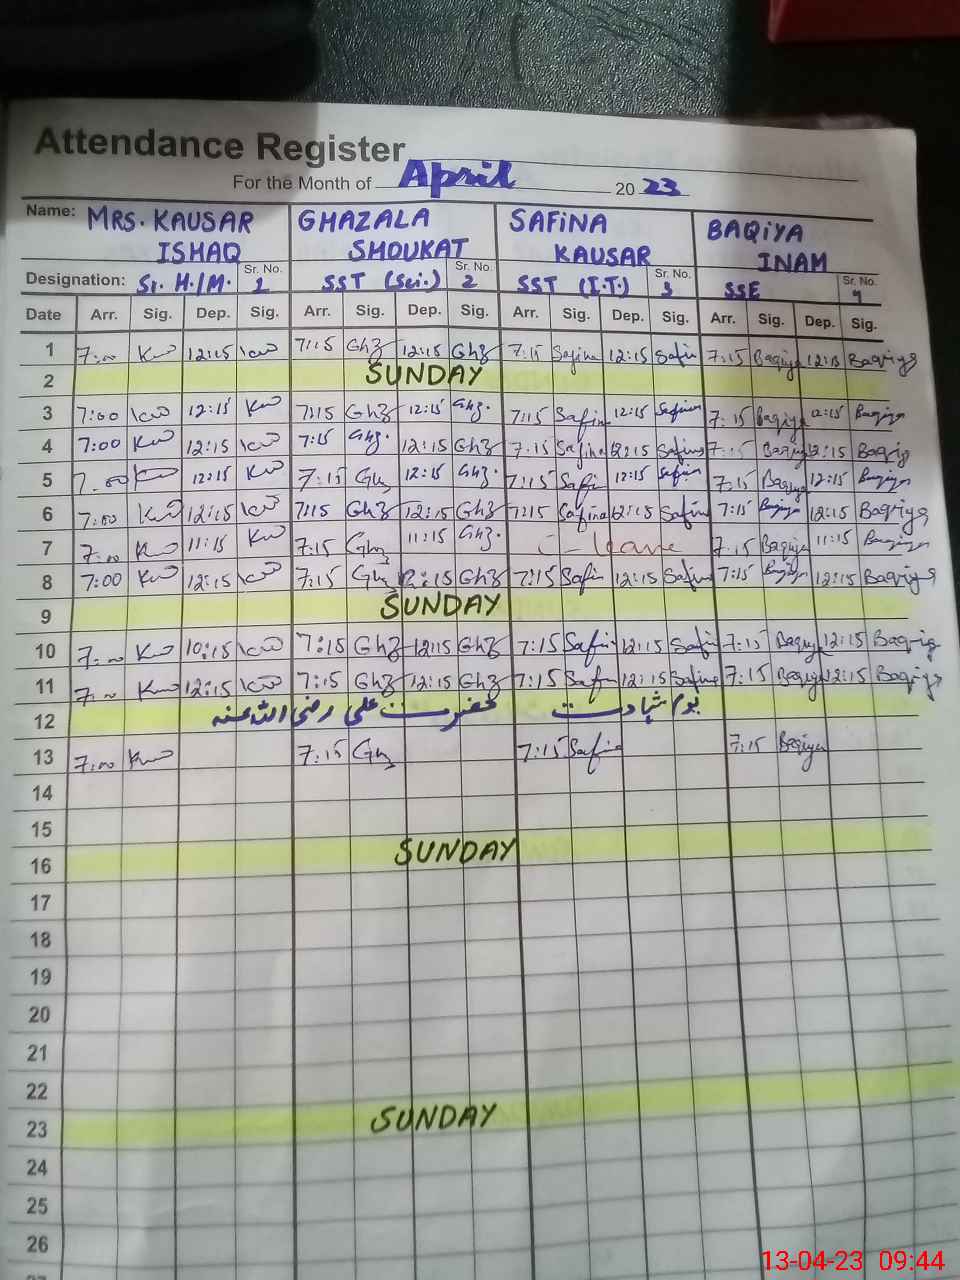 Attendance Register
For the Month of April 20 23
Name: MRS. KAUSAR ISHAQ GHAZALA SHOUKAT SAFiNA KAUSAR BAQiYA INAM
Designation: Sr. H/M. Sr. No. 1 SST (Sci.) Sr. No. 2 SST (I.T.) Sr. No. 3 SSE Sr. No. 4
Date Arr. Sig. Dep. Sig. Arr. Sig. Dep. Sig. Arr. Sig. Dep. Sig. Arr. Sig. Dep. Sig.
1 7:00 12:15 7:15 Ghz 12:15 Ghz 7:15 Safina 12:15 Safin 7:15 Baqiya 12:15 Baqiya
2 SUNDAY
3 7:00 12:15 7:15 Ghz 12:15 Ghz. 7:15 Safina 12:15 Safina 7:15 Baqiya 12:15 Baqiya
4 7:00 12:15 7:15 Ghz. 12:15 Ghz 7:15 Safina 12:15 Safina 7:15 Baqiya 12:15 Baqiya
5 7:00 12:15 7:15 12:15 Ghz. 7:15 Safi 12:15 Safina 7:15 Baqiya 12:15 Baqiya
6 7:00 12:15 7:15 Ghz 12:15 Ghz 7:15 Safina 12:15 Safina 7:15 Baqiya 12:15 Baqiya
7 7:00 11:15 7:15 Ghz 11:15 Ghz. C-leave 7:15 Baqiya 11:15 Baqiya
8 7:00 12:15 7:15 12:15 Ghz 7:15 Safin 12:15 Safina 7:15 Baqiya 12:15 Baqiya
9 SUNDAY
10 7:00 10:15 7:15 Ghz 12:15 Ghz 7:15 Safin 12:15 Safin 7:15 Baqiya 12:15 Baqiya
11 7:00 12:15 7:15 Ghz 12:15 Ghz 7:15 Safin 12:15 Safina 7:15 Baqiya 12:15 Baqiya
12 یوم شہادت حضرت علی رضی اللہ عنہ
13 7:00 7:15 7:15 Safina 7:15 Baqiya
14
15
16 SUNDAY
17
18
19
20
21
22
23 SUNDAY
24
25
26
13-04-23 09:44